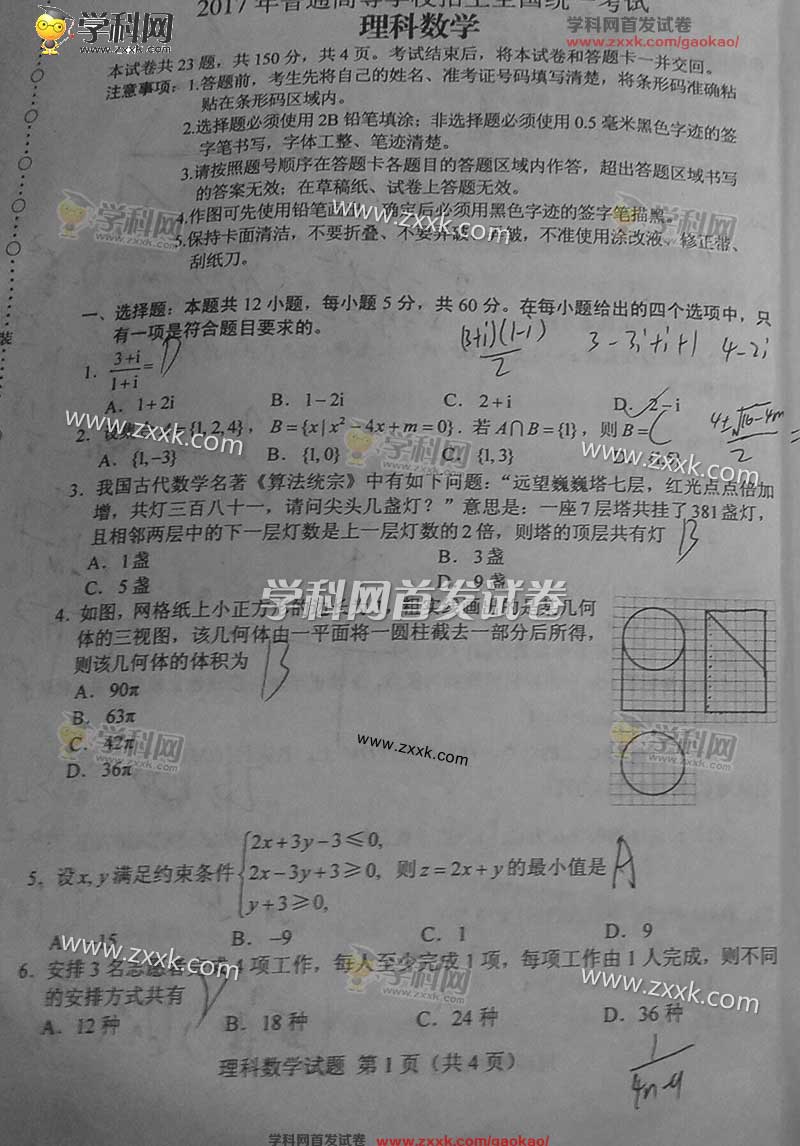 2017年普通高等学校招生全国统一考试
学科网首发试卷
www.zxxk.com/gaokao/
理科数学
本试卷共23题,共150分,共4页。考试结束后,将本试卷和答题卡一并交回。
注意事项:1.答题前,考生先将自己的姓名、准考证号码填写清楚,将条形码准确粘
贴在条形码区域内。
2.选择题必须使用2B铅笔填涂;非选择题必须使用0.5毫米黑色字迹的签
字笔书写,字体工整、笔迹清楚。
3.请按照题号顺序在答题卡各题目的答题区域内作答,超出答题区域书写
的答案无效;在草稿纸、试卷上答题无效。
4.作图可先使用铅笔画出,确定后必须用黑色字迹的签字笔描黑。
5.保持卡面清洁,不要折叠、不要弄破、弄皱,不准使用涂改液、修正带、
刮纸刀。
学科网
www.zxxk.com
装
一、选择题:本题共12小题,每小题5分,共60分。在每小题给出的四个选项中,只
有一项是符合题目要求的。
(3+i)(1-i)/2 3-3i+i+1 4-2i
1. (3+i)/(1+i)= D
A. 1+2i B. 1-2i C. 2+i D. 2-i
2. 设集合A={1,2,4},B={x|x²-4x+m=0}.若A∩B={1},则B= C
(4±√(16-4m))/2 =
A. {1,-3} B. {1,0} C. {1,3} D. {1,5}
3. 我国古代数学名著《算法统宗》中有如下问题:“远望巍巍塔七层,红光点点倍加
增,共灯三百八十一,请问尖头几盏灯?”意思是:一座7层塔共挂了381盏灯,
且相邻两层中的下一层灯数是上一层灯数的2倍,则塔的顶层共有灯 B
A. 1盏 B. 3盏
C. 5盏 D. 9盏
学科网首发试卷
4. 如图,网格纸上小正方形的边长为1,粗实线画出的是某几何
体的三视图,该几何体由一平面将一圆柱截去一部分后所得,
则该几何体的体积为 B
A. 90π
B. 63π
C. 42π
D. 36π
www.zxxk.com
5. 设x,y满足约束条件{2x+3y-3≤0,
2x-3y+3≥0, 则z=2x+y的最小值是 A
y+3≥0,
A. -15 B. -9 C. 1 D. 9
6. 安排3名志愿者完成4项工作,每人至少完成1项,每项工作由1人完成,则不同
的安排方式共有 D
A. 12种 B. 18种 C. 24种 D. 36种
理科数学试题 第1页(共4页)
学科网首发试卷 www.zxxk.com/gaokao/